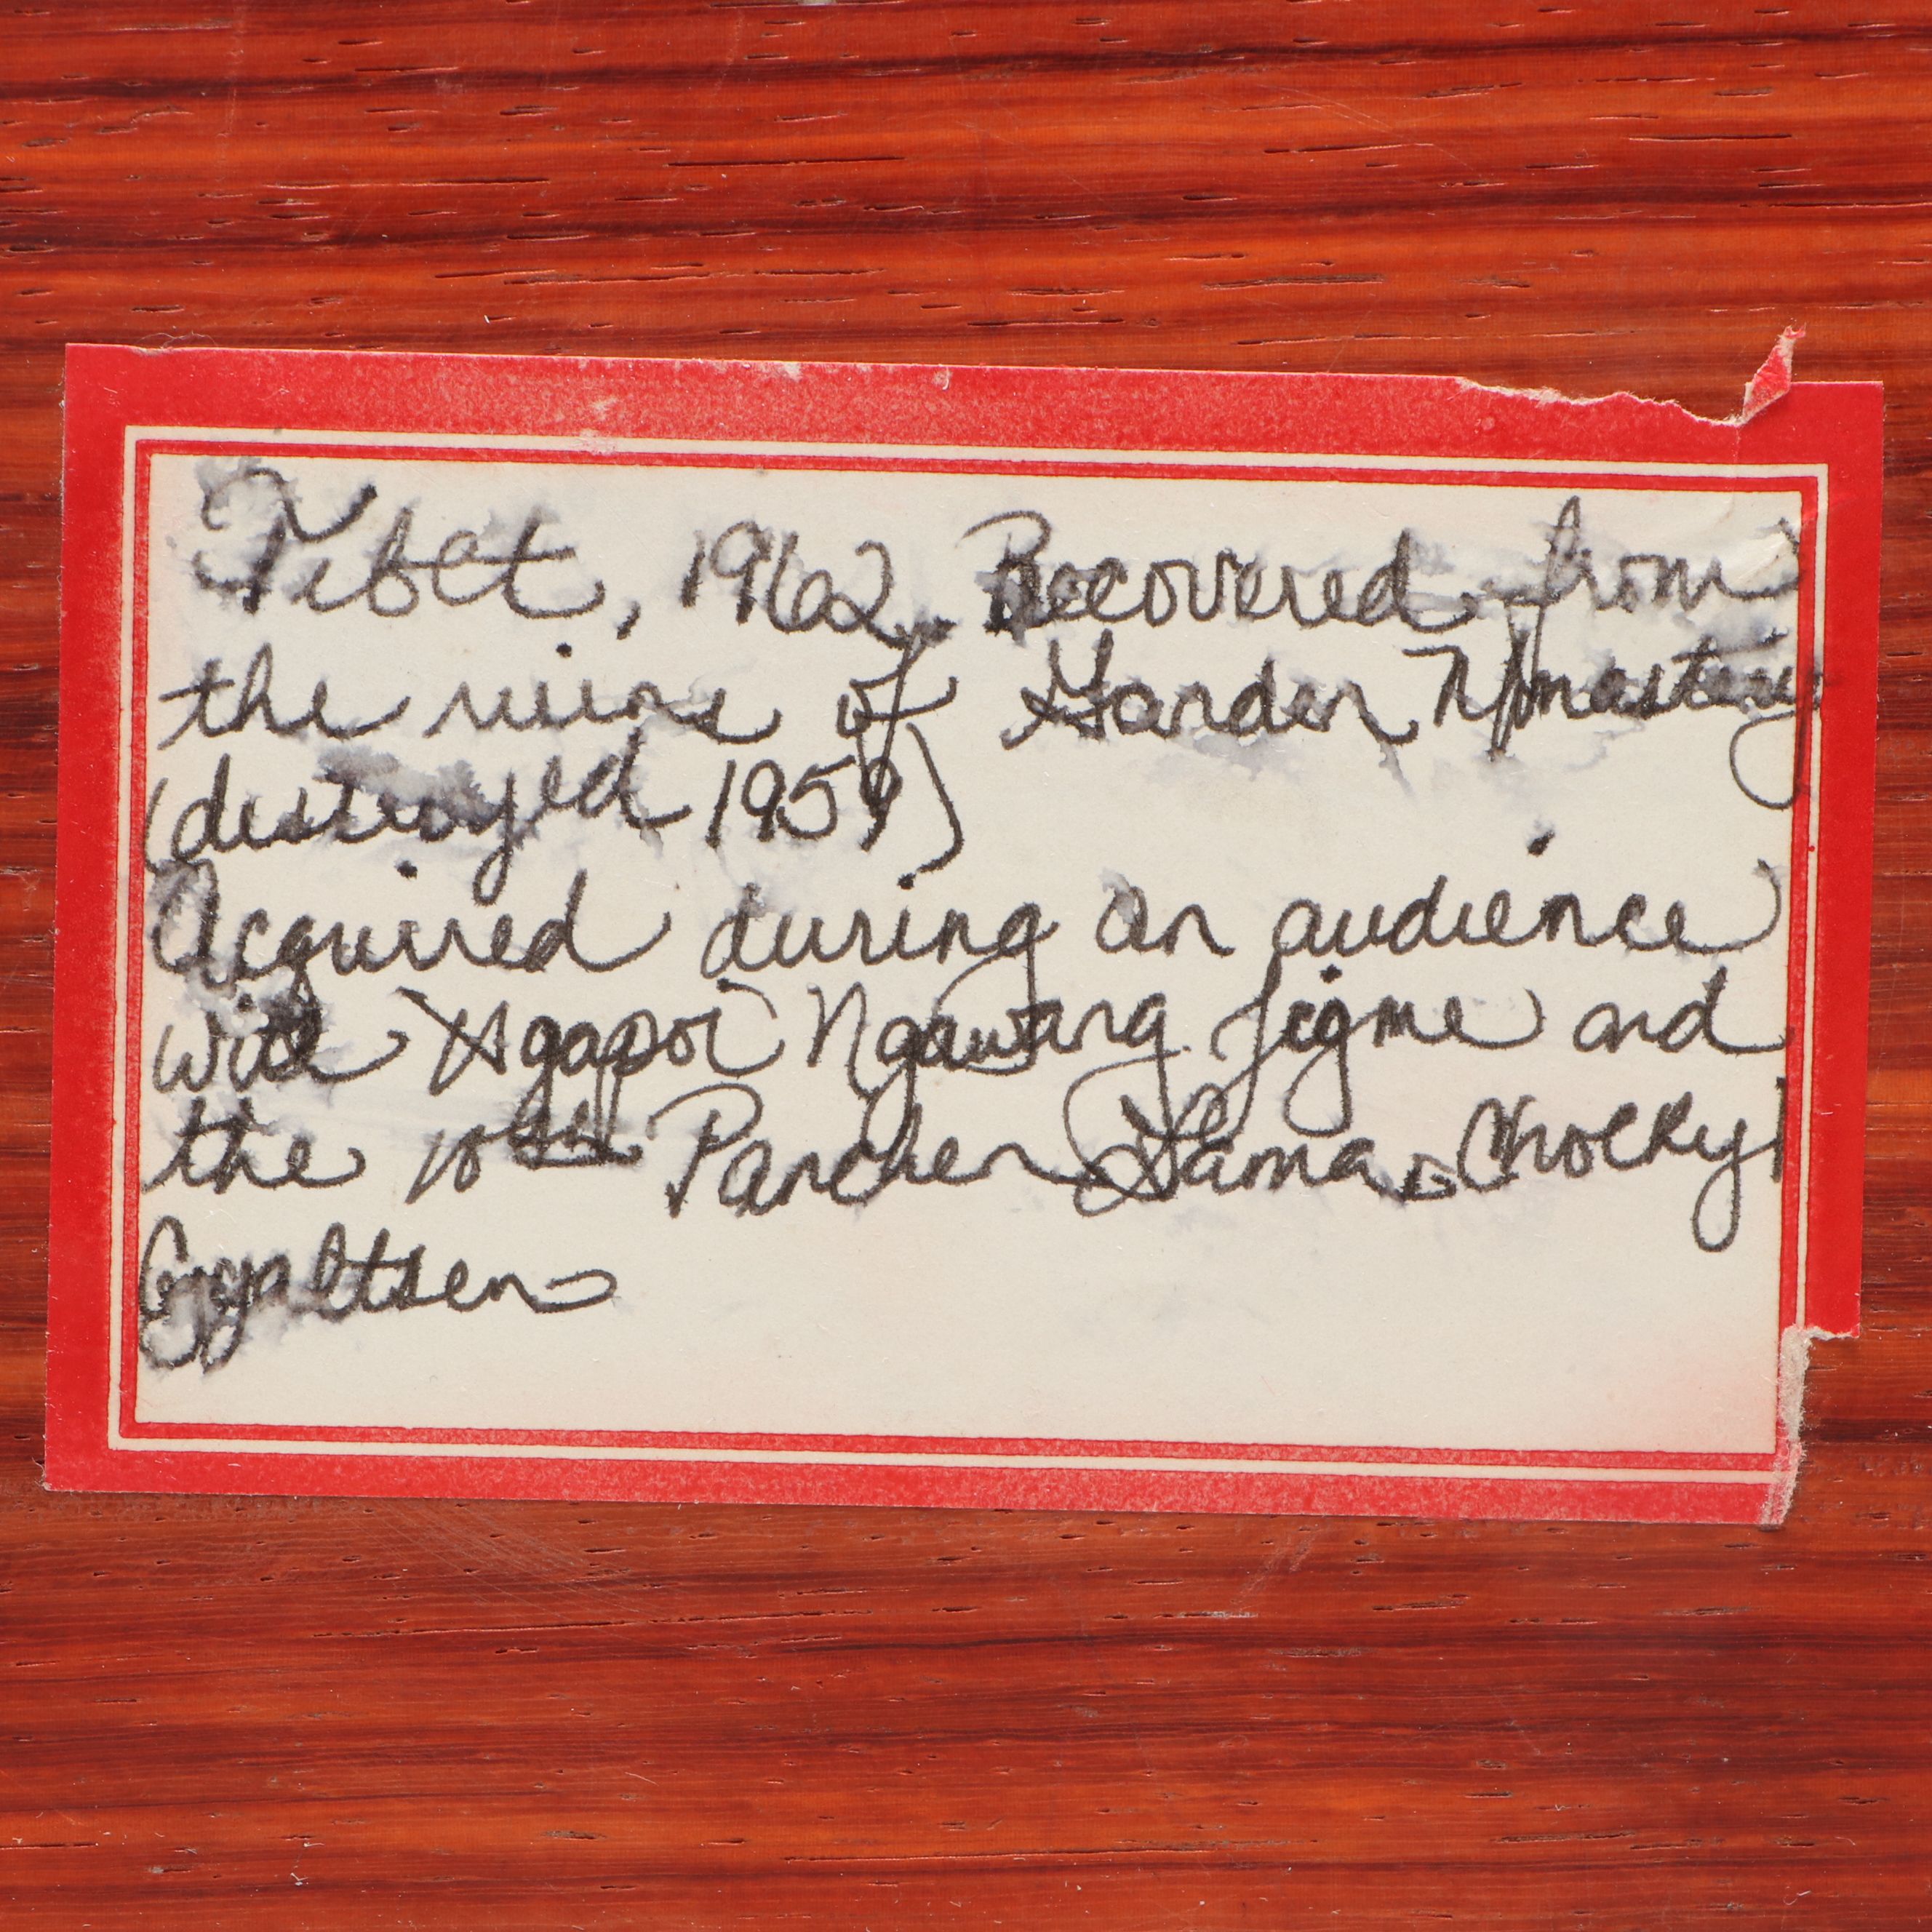 Tibet, 1962. Recovered from
the ruins of Ganden Monastery
(destroyed 1959)
Acquired during an audience
with Ngapoi Ngawang Jigme and
the 10th Panchen Lama, Choekyi
Gyaltsen